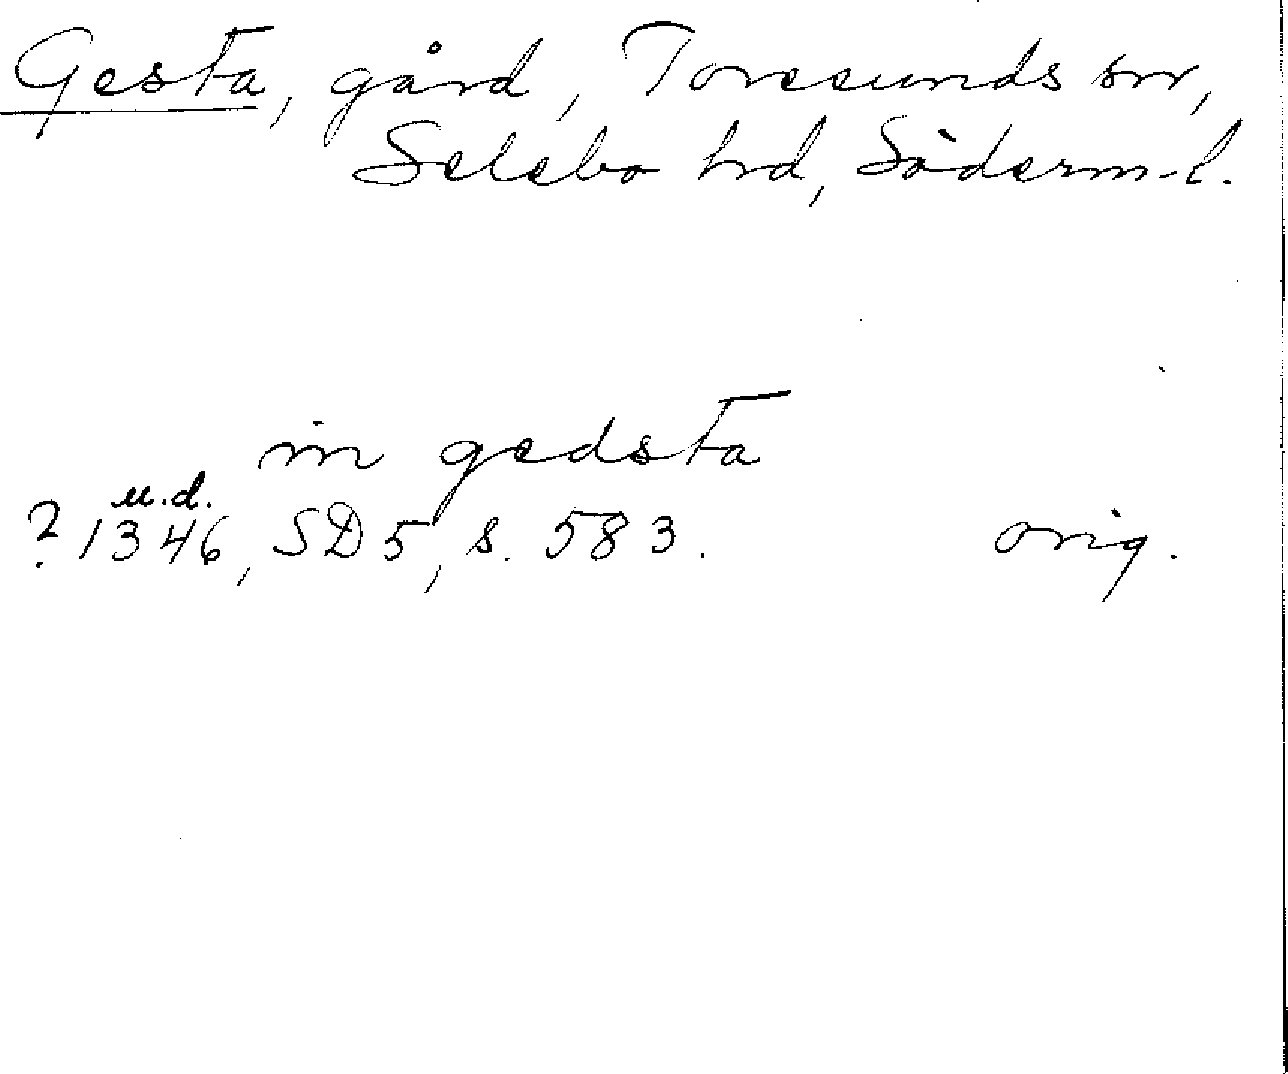 Gesta, gård, Toresunds sn,
Selebo hrd, Söderm-l.
in gedsta
u.d.
? 1346, SD 5, s. 583. orig.